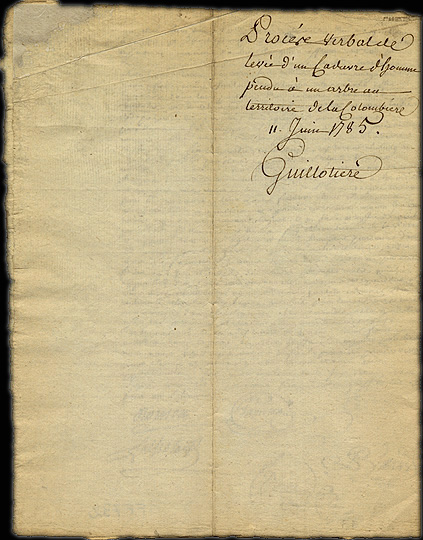 Procére verbal de
levée d'un Cadavre d'homme
pendu à un arbre au
territoire de la Colombiere
11. Juin 1785.
Guillotiere